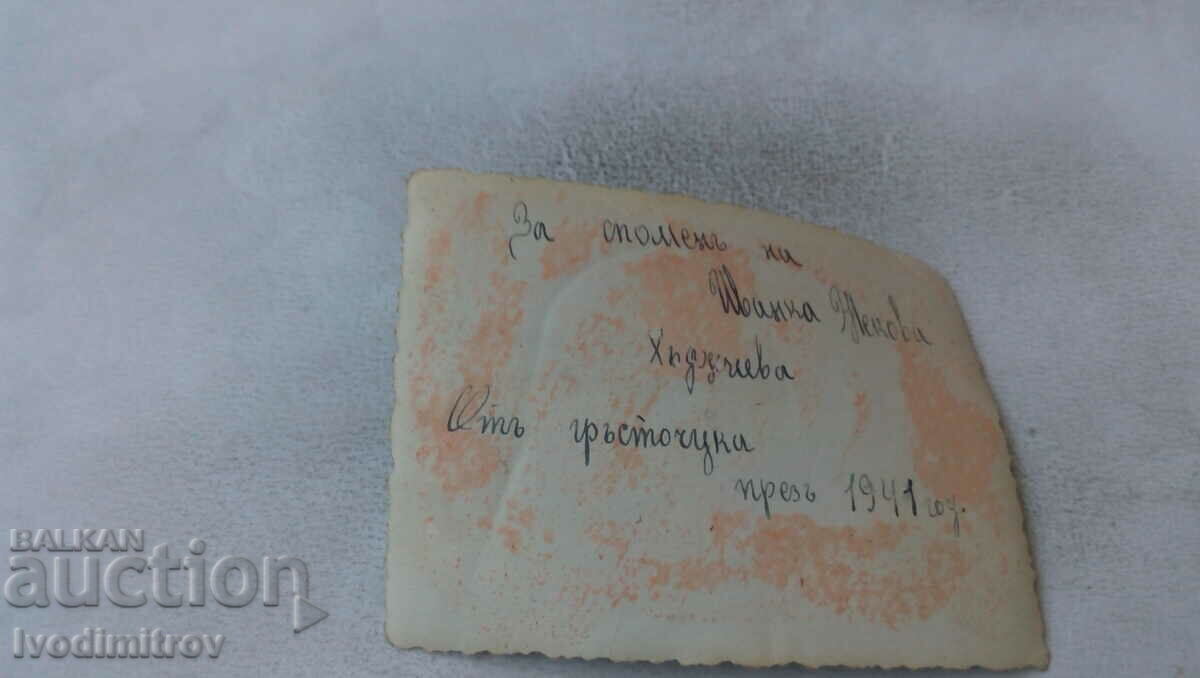 За споменъ на
Иванка Жекова
Хаджиева
Отъ гръсточука
презъ 1941 год.
BALKAN
auction
Ivodimitrov